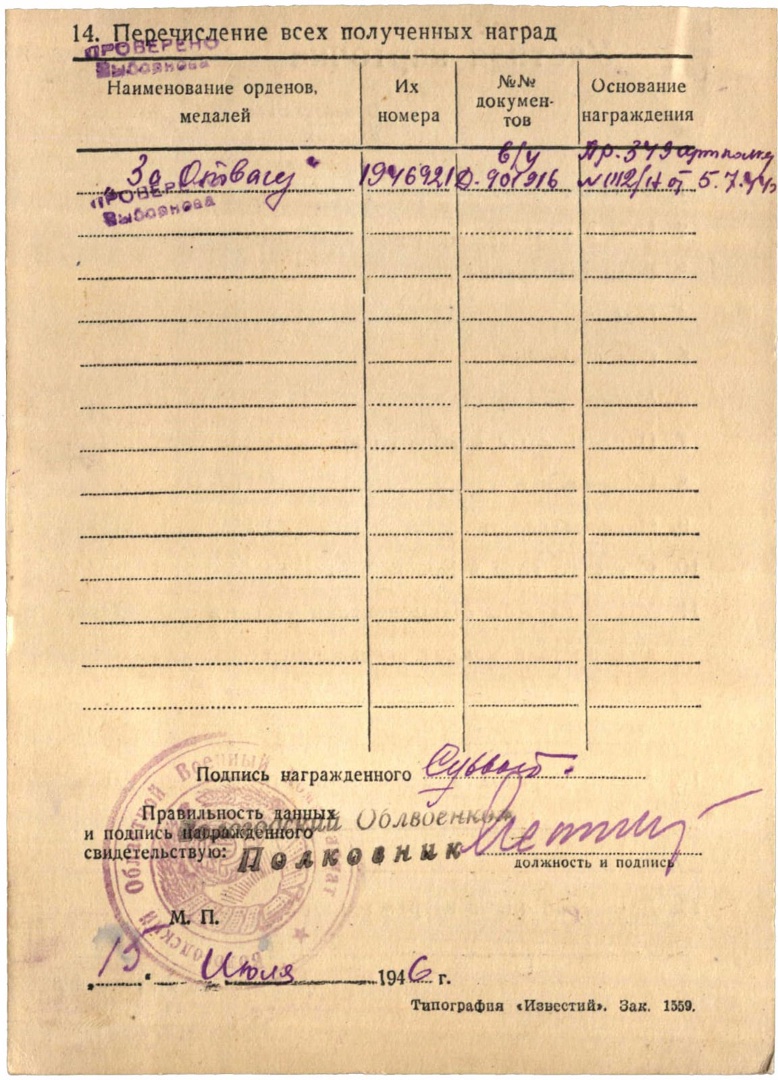 14. Перечисление всех полученных наград
ПРОВЕРЕНО
Наименование орденов, медалей
Их номера
№№ документов
Основание награждения
"За Отвагу" 1946921 в/у Д. 901916 Пр. 349 артполку
N 1112/н от 5.7.44
ПРОВЕРЕНО
Подпись награжденного
Правильность данных
и подпись награжденного
свидетельствую:
Вологодский Облвоенком
Полковник
должность и подпись
М. П.
"15" Июля 1946 г.
Типография «Известий». Зак. 1559.